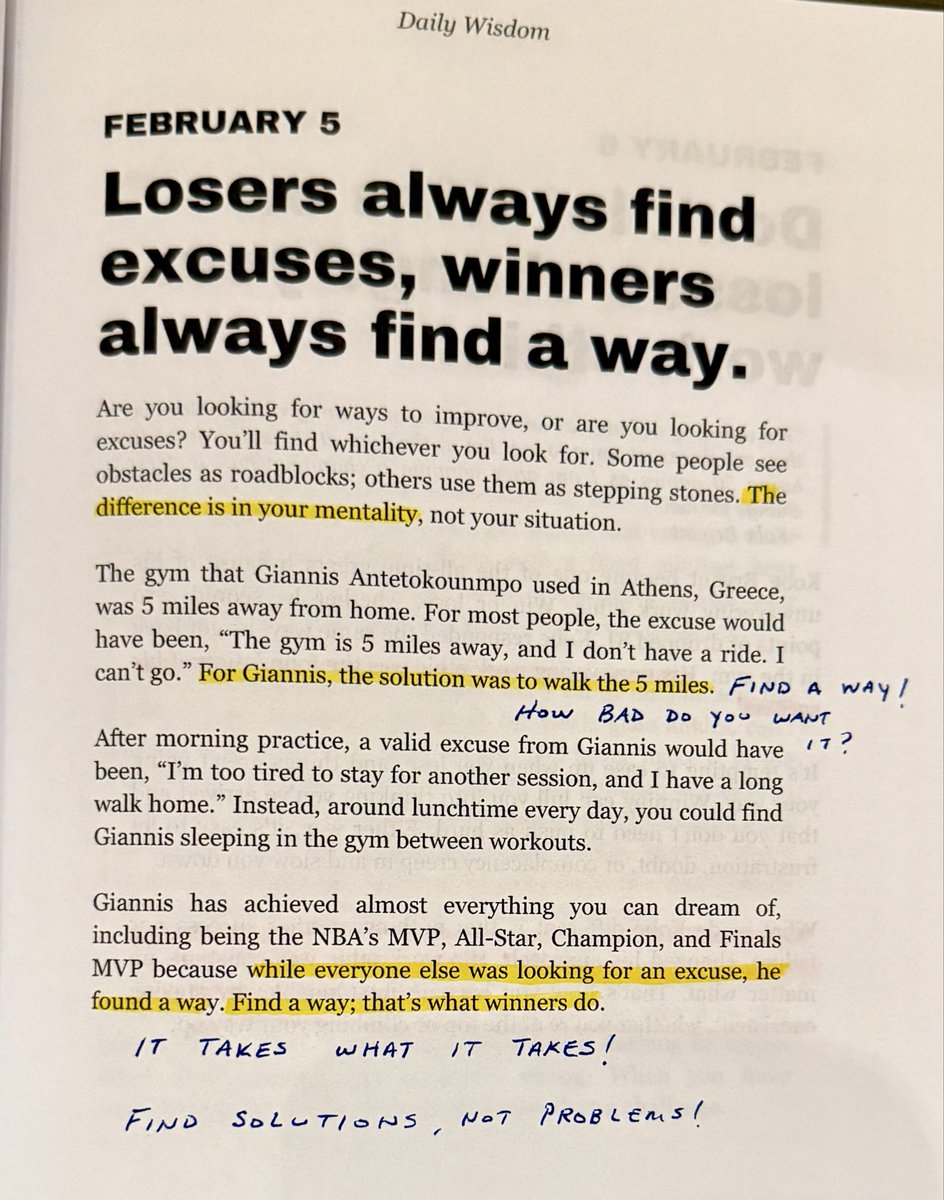 Daily Wisdom
FEBRUARY 5
Losers always find
excuses, winners
always find a way.
Are you looking for ways to improve, or are you looking for
excuses? You’ll find whichever you look for. Some people see
obstacles as roadblocks; others use them as stepping stones. The
difference is in your mentality, not your situation.
The gym that Giannis Antetokounmpo used in Athens, Greece,
was 5 miles away from home. For most people, the excuse would
have been, “The gym is 5 miles away, and I don’t have a ride. I
can’t go.” For Giannis, the solution was to walk the 5 miles. FIND A WAY!
HOW BAD DO YOU WANT
IT?
After morning practice, a valid excuse from Giannis would have
been, “I’m too tired to stay for another session, and I have a long
walk home.” Instead, around lunchtime every day, you could find
Giannis sleeping in the gym between workouts.
Giannis has achieved almost everything you can dream of,
including being the NBA’s MVP, All-Star, Champion, and Finals
MVP because while everyone else was looking for an excuse, he
found a way. Find a way; that’s what winners do.
IT TAKES WHAT IT TAKES!
FIND SOLUTIONS, NOT PROBLEMS!